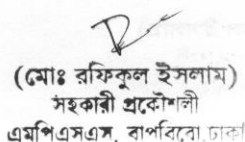 (মোঃ রফিকুল ইসলাম)
সহকারী প্রকৌশলী
এমপিএসএস, বাপবিবো, ঢাকা